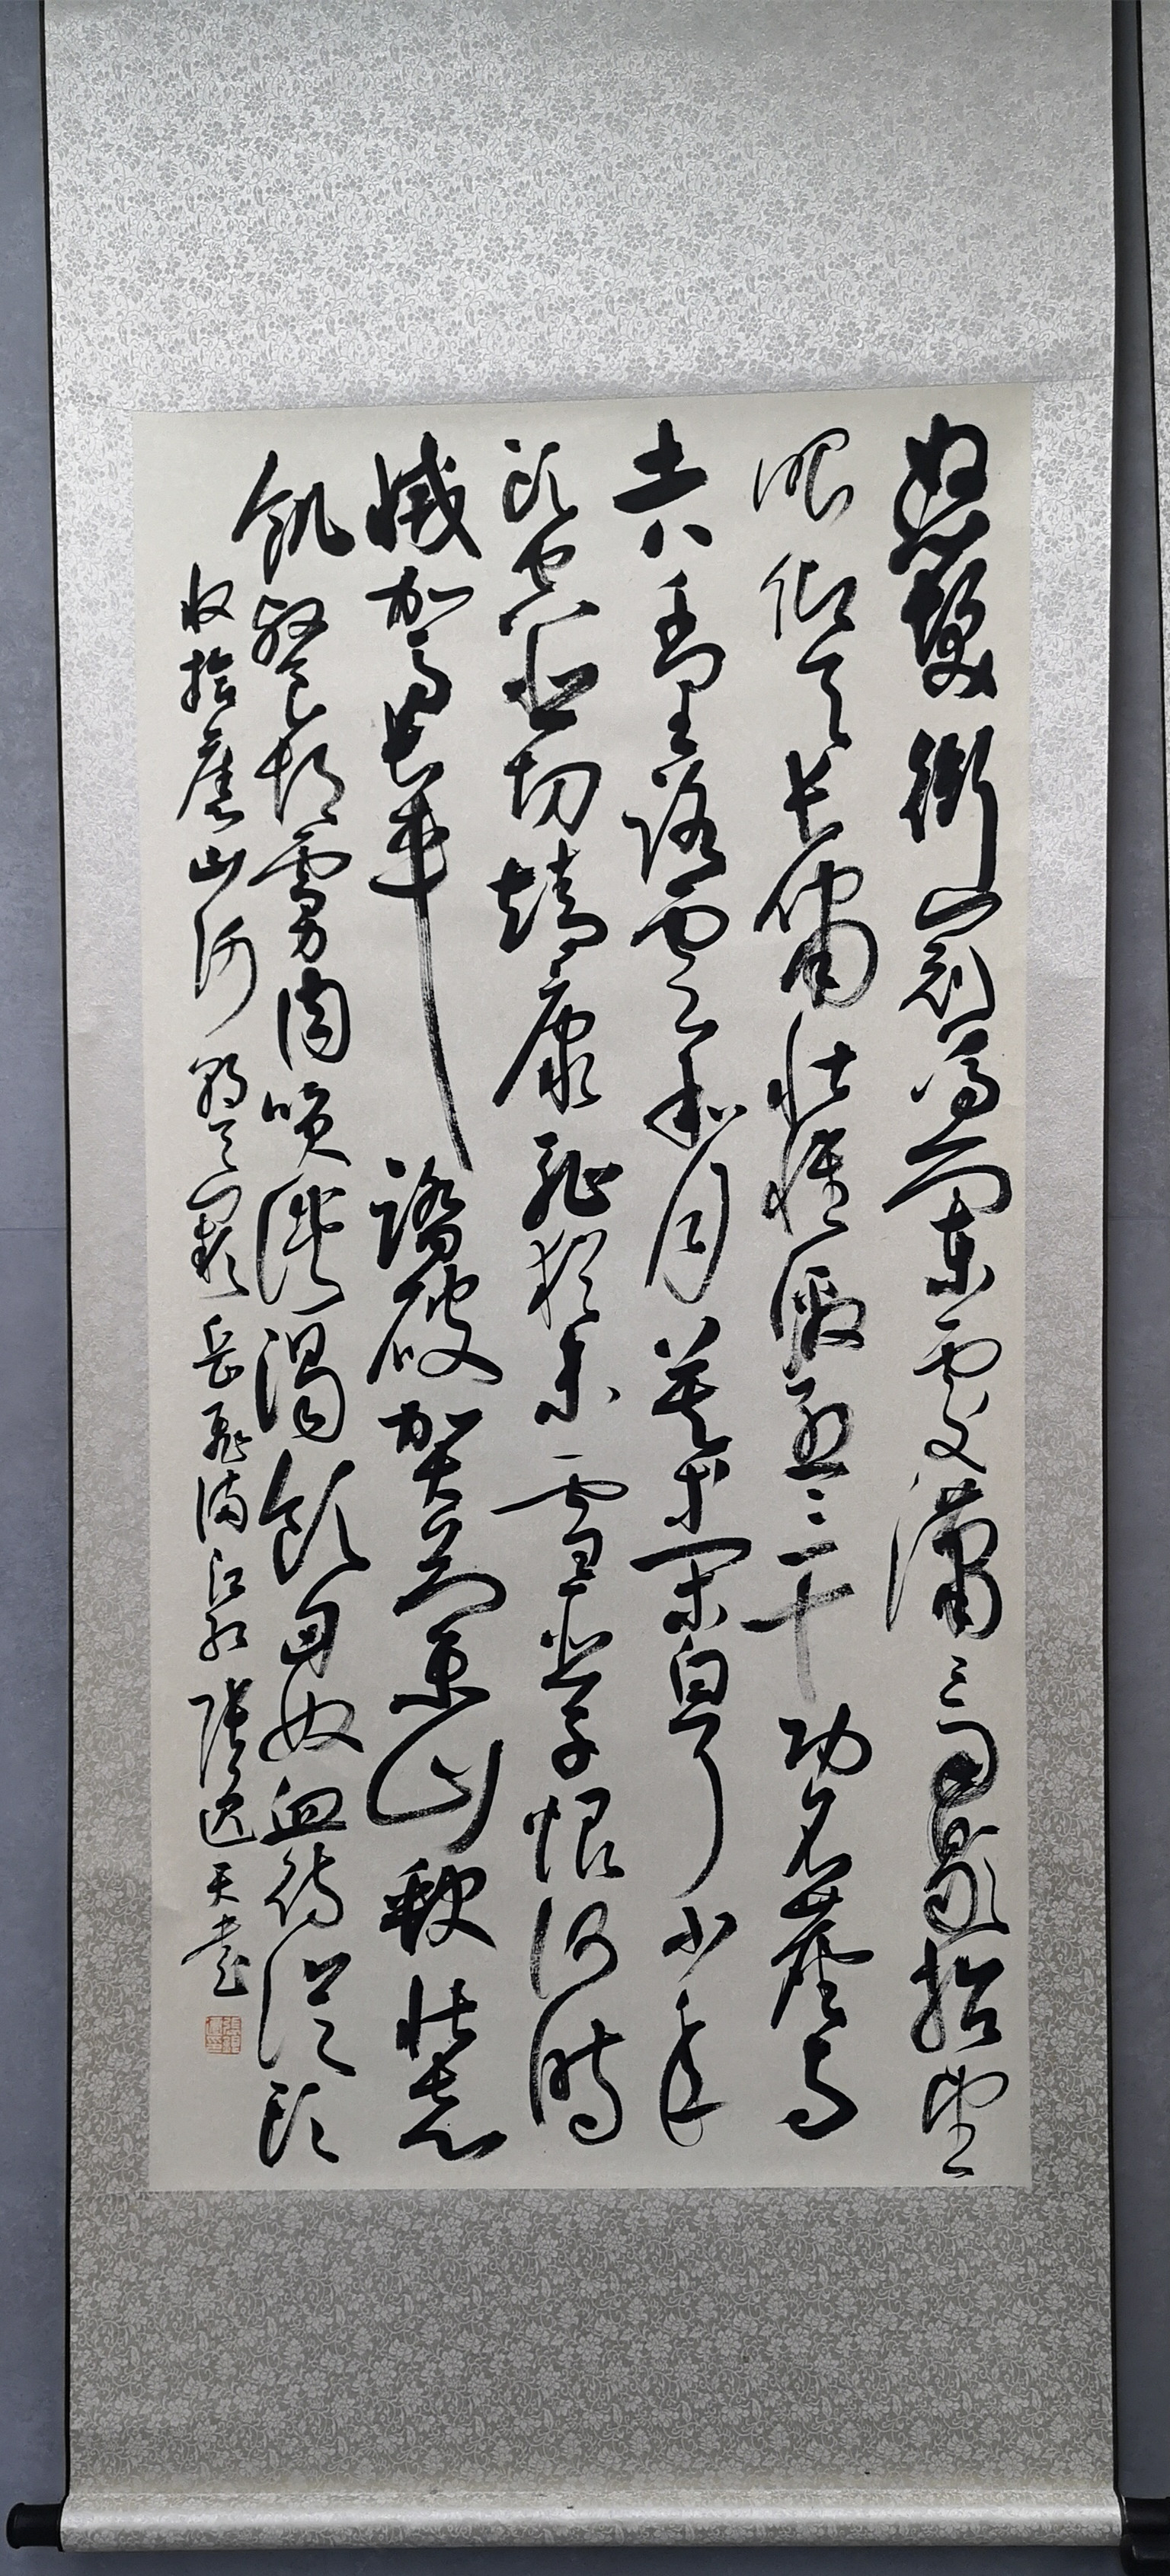 怒髮衝冠憑闌處瀟瀟雨歇抬望
眼仰天長嘯壯懷激烈三十功名塵與
土八千里路雲和月莫等閑白了少年
頭空悲切靖康恥猶未雪臣子恨何時
滅駕長車踏破賀蘭山缺壯志
飢餐胡虜肉笑談渴飲匈奴血待從頭
收拾舊山河朝天闕岳飛滿江紅張天書